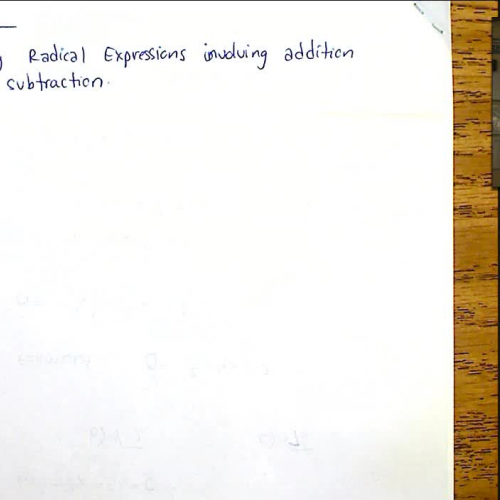 Radical Expressions involving addition
subtraction.